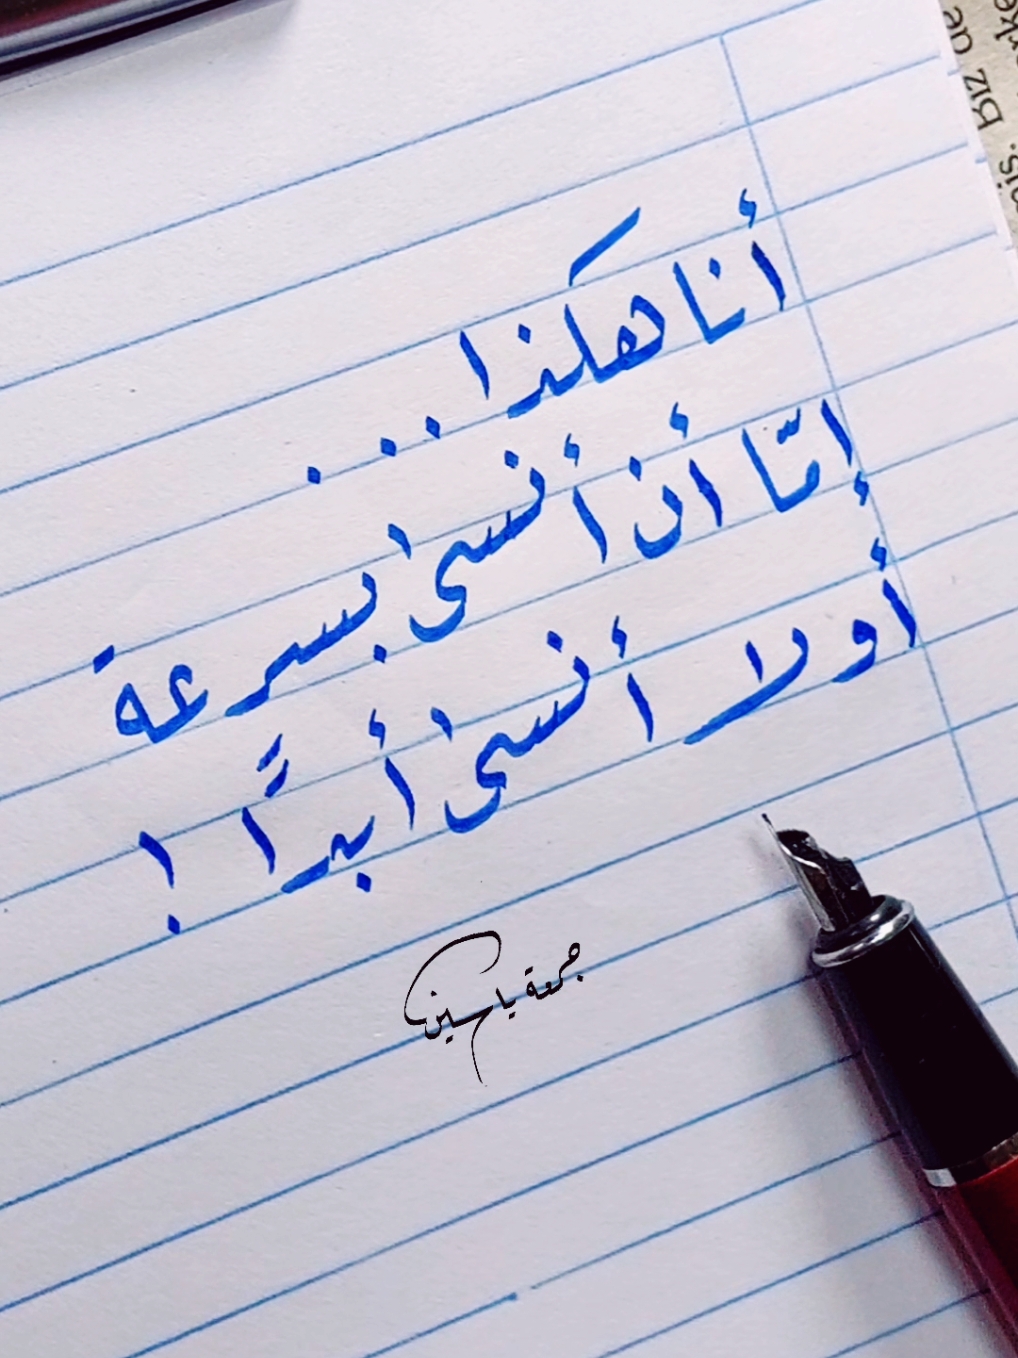 أنا هكذا ...
إمّا أن أنسىٰ بسرعة
أو لا أنسىٰ أبدًا !
جمعة ياسين
Biz de